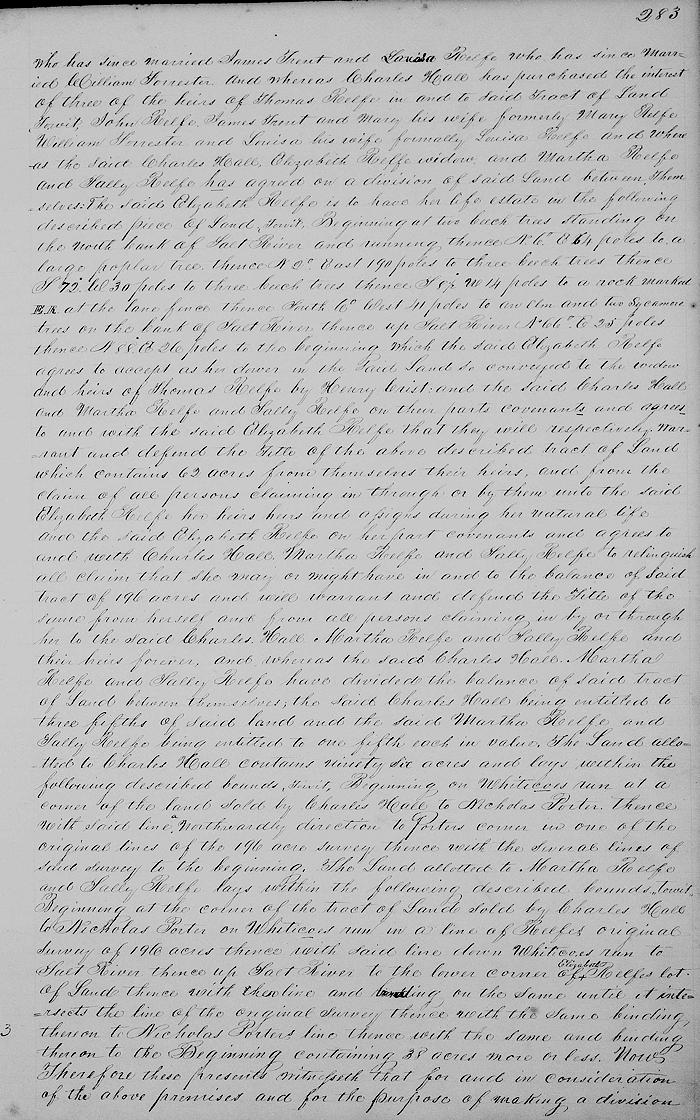 283
who has since married James Trent and Louisa Relfe who has since Marr=
ied William Forrester. and whereas Charles Hall has purchased the interest
of three of the heirs of Thomas Relfe in and to said Tract of Land
Towit, John Relfe, James Trent and Mary his wife formerly Mary Relfe
William Forrester and Louisa his wife formally Louisa Relfe and Where
=as the said Charles Hall, Elizabeth Relfe widow, and Martha Relfe
and Sally Relfe has agreed on a division of said Land between Them
=selves: The said Elizabeth Relfe is to have her life estate in the following
described piece of Land, Towit, Beginning at two beech trees standing on
the north bank of Salt River and running thence N 6° E 64 poles to a
large poplar tree thence N 2° East 190 poles to three beech trees thence
S 72° W 30 poles to three beech trees thence S 8½ W 14 poles to a rock marked
at the lane fence thence South 6° West 41 poles to an elm and two Sycamore
trees on the bank of Salt River thence up Salt River N 66° E 25 poles
thence N 88 E 26 poles to the beginning which the said Elizabeth Relfe
agrees to accept as her dower in the said Land so conveyed to the widow
and heirs of Thomas Relfe by Henry Crist: and the said Charles Hall
and Martha Relfe and Sally Relfe on their parts covenants and agrees
to and with the said Elizabeth Relfe that they will respectively War
=rant and defend the Title of the above described tract of Land
which contains 62 acres from themselves their heirs, and from the
claim of all persons claiming in through or by them unto the said
Elizabeth Relfe her heirs heirs and assigns during her natural life
and the said Elizabeth Relfe on her part covenants and agrees to
and with Charles Hall, Martha Relfe and Sally Relfe to relinquish
all claim that she may or might have in and to the balance of said
tract of 196 acres and will warrant and defend the Title of the
same from herself and from all persons claiming in by or through
her to the said Charles Hall Martha Relfe and Sally Relfe and
their heirs forever, and whereas the said Charles Hall, Martha
Relfe and Sally Relfe have divided the balance of said tract
of Land between themselves; the said Charles Hall being entitled to
three fifths of said land and the said Martha Relfe and
Sally Relfe being entitled to one fifth each in value. The Land allo=
tted to Charles Hall contains ninety six acres and lays within the
following described bounds, Towit, Beginning on Whiticoes run at a
corner of the land sold by Charles Hall to Nicholas Porter thence
with said line a Northwardly direction to Porters corner in one of the
original lines of the 196 acre survey thence with the several lines of
said survey to the beginning. The Land allotted to Martha Relfe
and Sally Relfe lays within the following described bounds, Towit
Beginning at the corner of the tract of Land sold by Charles Hall
to Nicholas Porter on Whiticoes run in a line of Relfes original
survey of 196 acres thence with said line down Whiticoes run to
Salt River thence up Salt River to the lower corner of Elizabeth Relfes lot
of Land thence with the line and binding on the same until it inte=
=rsects the line of the original survey thence with the same binding
thereon to Nicholas Porters line thence with the same and binding
thereon to the Beginning containing 38 acres more or less. Now
Therefore these presents witnesseth that for and in consideration
of the above premises and for the purpose of making a division
3